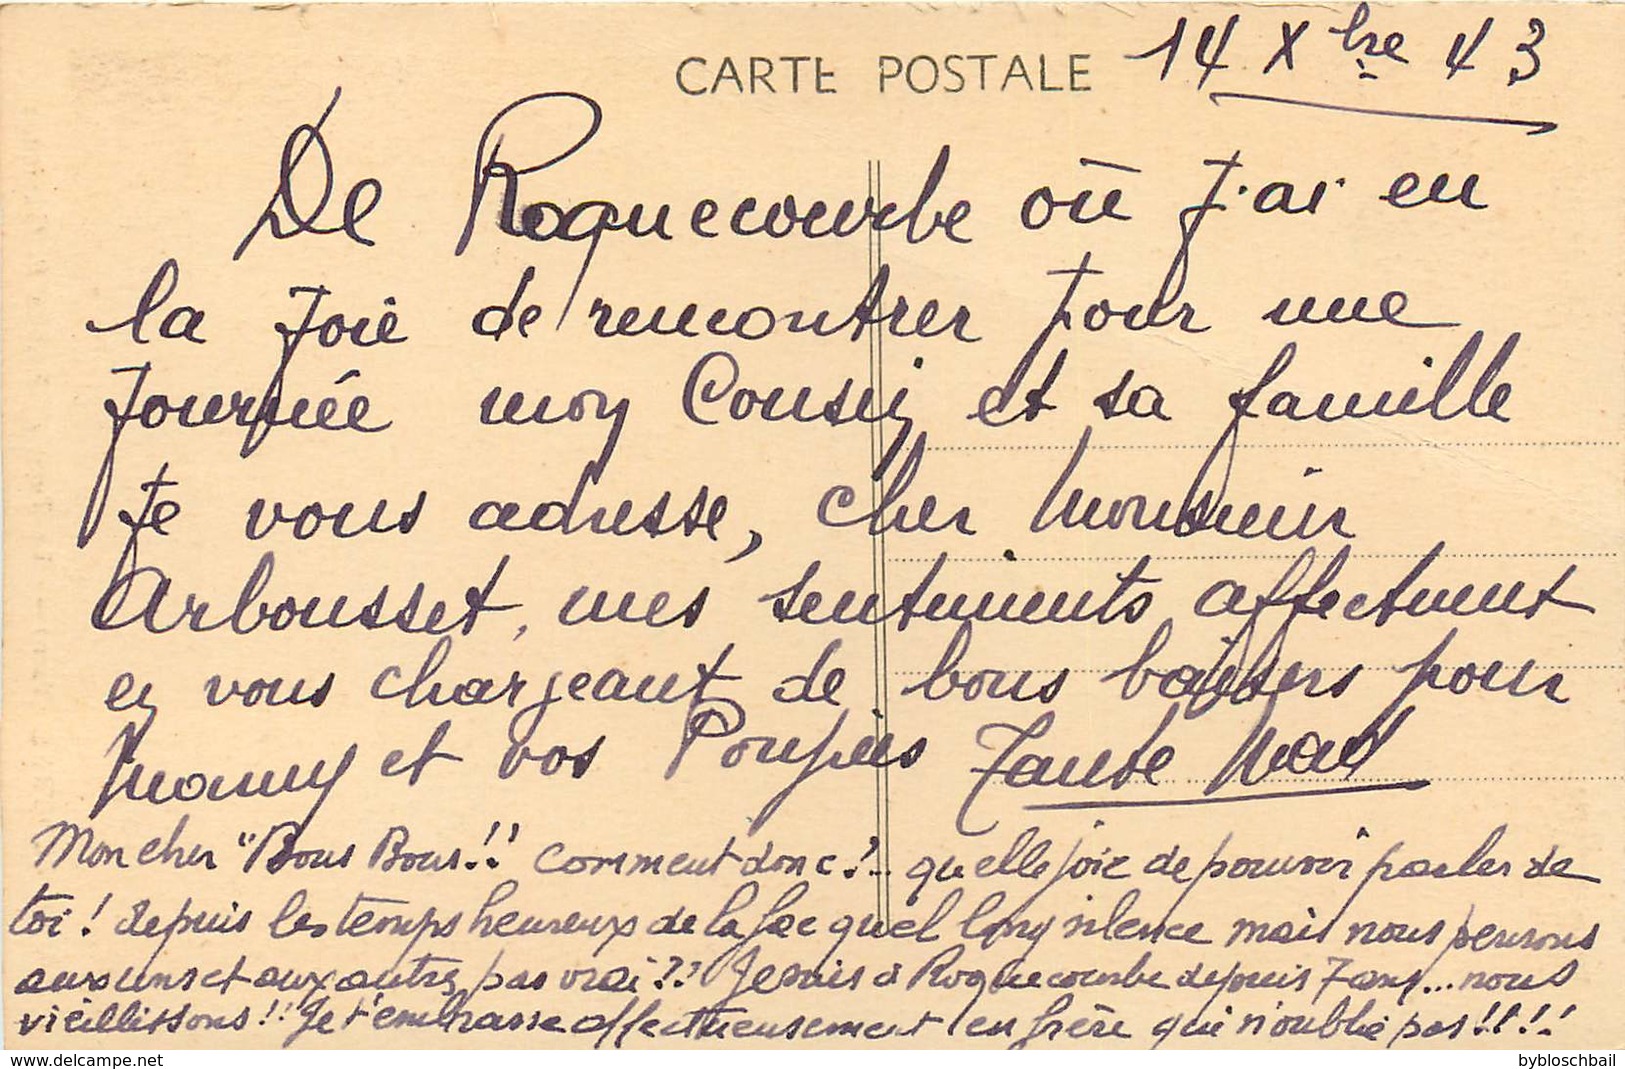 CARTE POSTALE
14 Xbre 43
De Roquecourbe où j'ai eu
la joie de rencontrer pour une
journée mon Cousin et sa famille
je vous adresse, cher Monsieur
Arbousset, mes sentiments affectueux
en vous chargeant de bons baisers pour
et vos Poupées Tante
Mon cher "Bous Bous!! comment donc!.. quelle joie de pouvoir parler de
toi! depuis les temps heureux de la fac quel long silence mais nous pensons
aux uns et aux autres, pas vrai?? Je suis à Roquecourbe depuis 7 ans... nous
vieillissons!! Je t'embrasse affectueusement en frère qui n'oublie pas!!!!
delcampe.net
bybloschbail